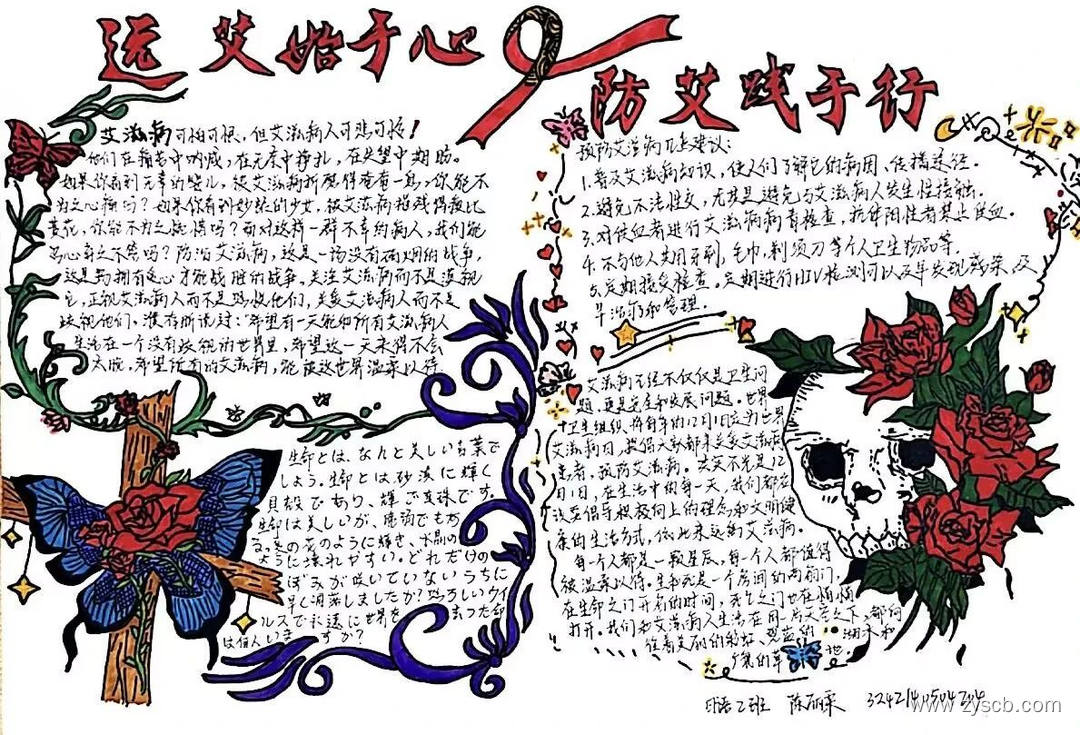 远艾始于心
防艾践于行
艾滋病可怕可恨，但艾滋病人可悲可怜！
他们在痛苦中呐喊，在无奈中挣扎，在失望中期盼。
如果你看到无辜的婴儿，被艾滋病折磨得奄奄一息，你能不
为之心痛吗？如果你看到妙龄的少女，被艾滋病摧残得瘦比
黄花，你能不为之惋惜吗？面对这样一群不幸的病人，我们能
心奇之不管吗？防治艾滋病，这是一场没有硝烟的战争，
这是场拥有爱心才能战胜的战争。关注艾滋病而不是漠视
它，正视艾滋病人而不是恐惧他们，关爱艾滋病人而不是
歧视他们，濮存昕说过：“希望有一天能和所有艾滋病人
生活在一个没有歧视的世界里，希望这一天来得不会
太晚，希望所有的艾滋病，能被这世界温柔以待
预防艾滋病几点建议：
1.普及艾滋病知识，使人们了解它的病因，传播途径。
2.避免不洁性交，尤其是避免与艾滋病人发生性接触。
3.对供血者进行艾滋病病毒检查，抗体阳性者禁止供血。
4.不与他人共用牙刷，毛巾，剃须刀等个人卫生物品等。
5.定期接受检查。定期进行HIV检测可以及早发现感染，及
早治疗和管理。
艾滋病已经不仅仅是卫生问
题，更是安全和发展问题。世界
卫生组织将每年的12月1日定为世界
艾滋病日，提倡大家都来关爱艾滋病
患者，预防艾滋病。关艾不光是12
月1日，在生活中的每一天，我们都应
该要倡导积极向上的理念和文明健
康的生活方式，依此来远离艾滋病。
每一个人都是一颗星辰，每一个人都值得
被温柔以待。生和死是一个房间的两扇门，
在生命之门开启的时间，死亡之门也在悄悄
打开。我们和艾滋病人生活在同一片天空之下，都向
往着美丽的彩虹、湛蓝的湖水和
广袤的草地。
生命とは、なんと美しい言葉で
しょう。生命とは砂漠に輝く
貝殻であり、輝く真珠です。
生命は美しいが、脆弱でもあ
る。夏の花のように輝き、水晶の
ように壊れやすい。どれだけの
つぼみが咲いていないうちに
早く凋落しましたか？恐ろしいウイ
ルスで永遠に世界を去った命
は何人いますか？
日语2班 陈丽霖
www.zyscb.com